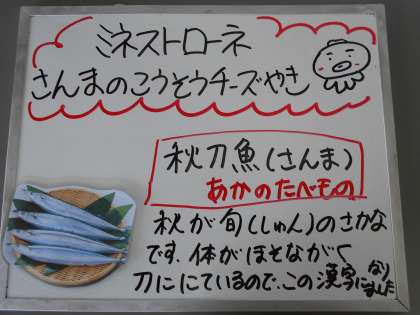 ミネストローネ
さんまのこうそうチーズやき
秋刀魚(さんま)
あかのたべもの
秋が旬(しゅん)のさかな
です。体がほそながく
刀ににているので、この漢字になりました